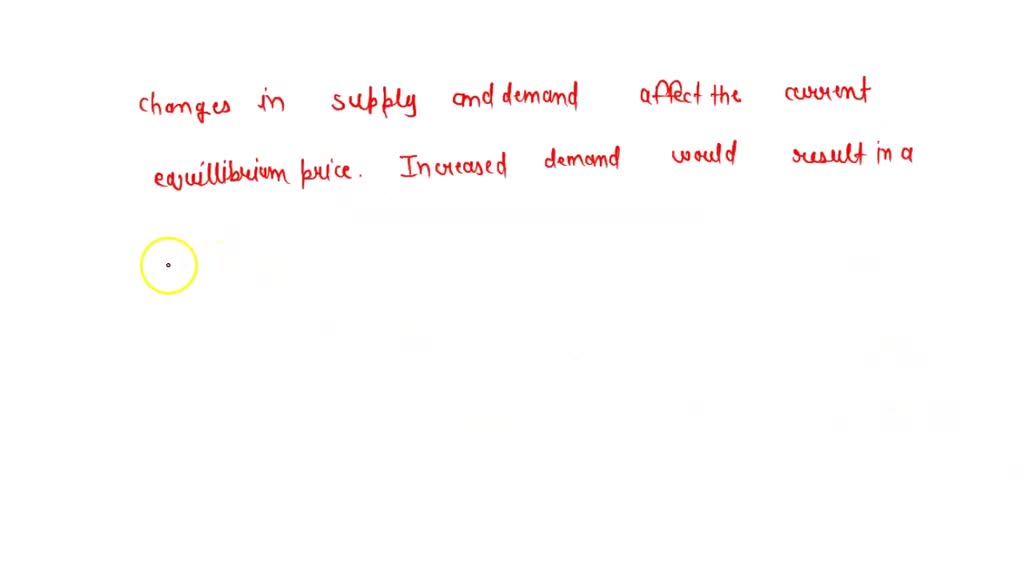 changes in supply and demand affect the current
equillibrium price. Increased demand would result in a